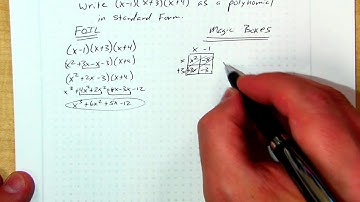 Write (x-1)(x+3)(x+4) as a polynomial
in standard form.
FOIL
(x-1)(x+3)(x+4)
(x²+3x-x-3)(x+4)
(x²+2x-3)(x+4)
x³+4x²+2x²+8x-3x-12
x³+6x²+5x-12
Magic Boxes
x -1
x x² -x
+3 +3x -3